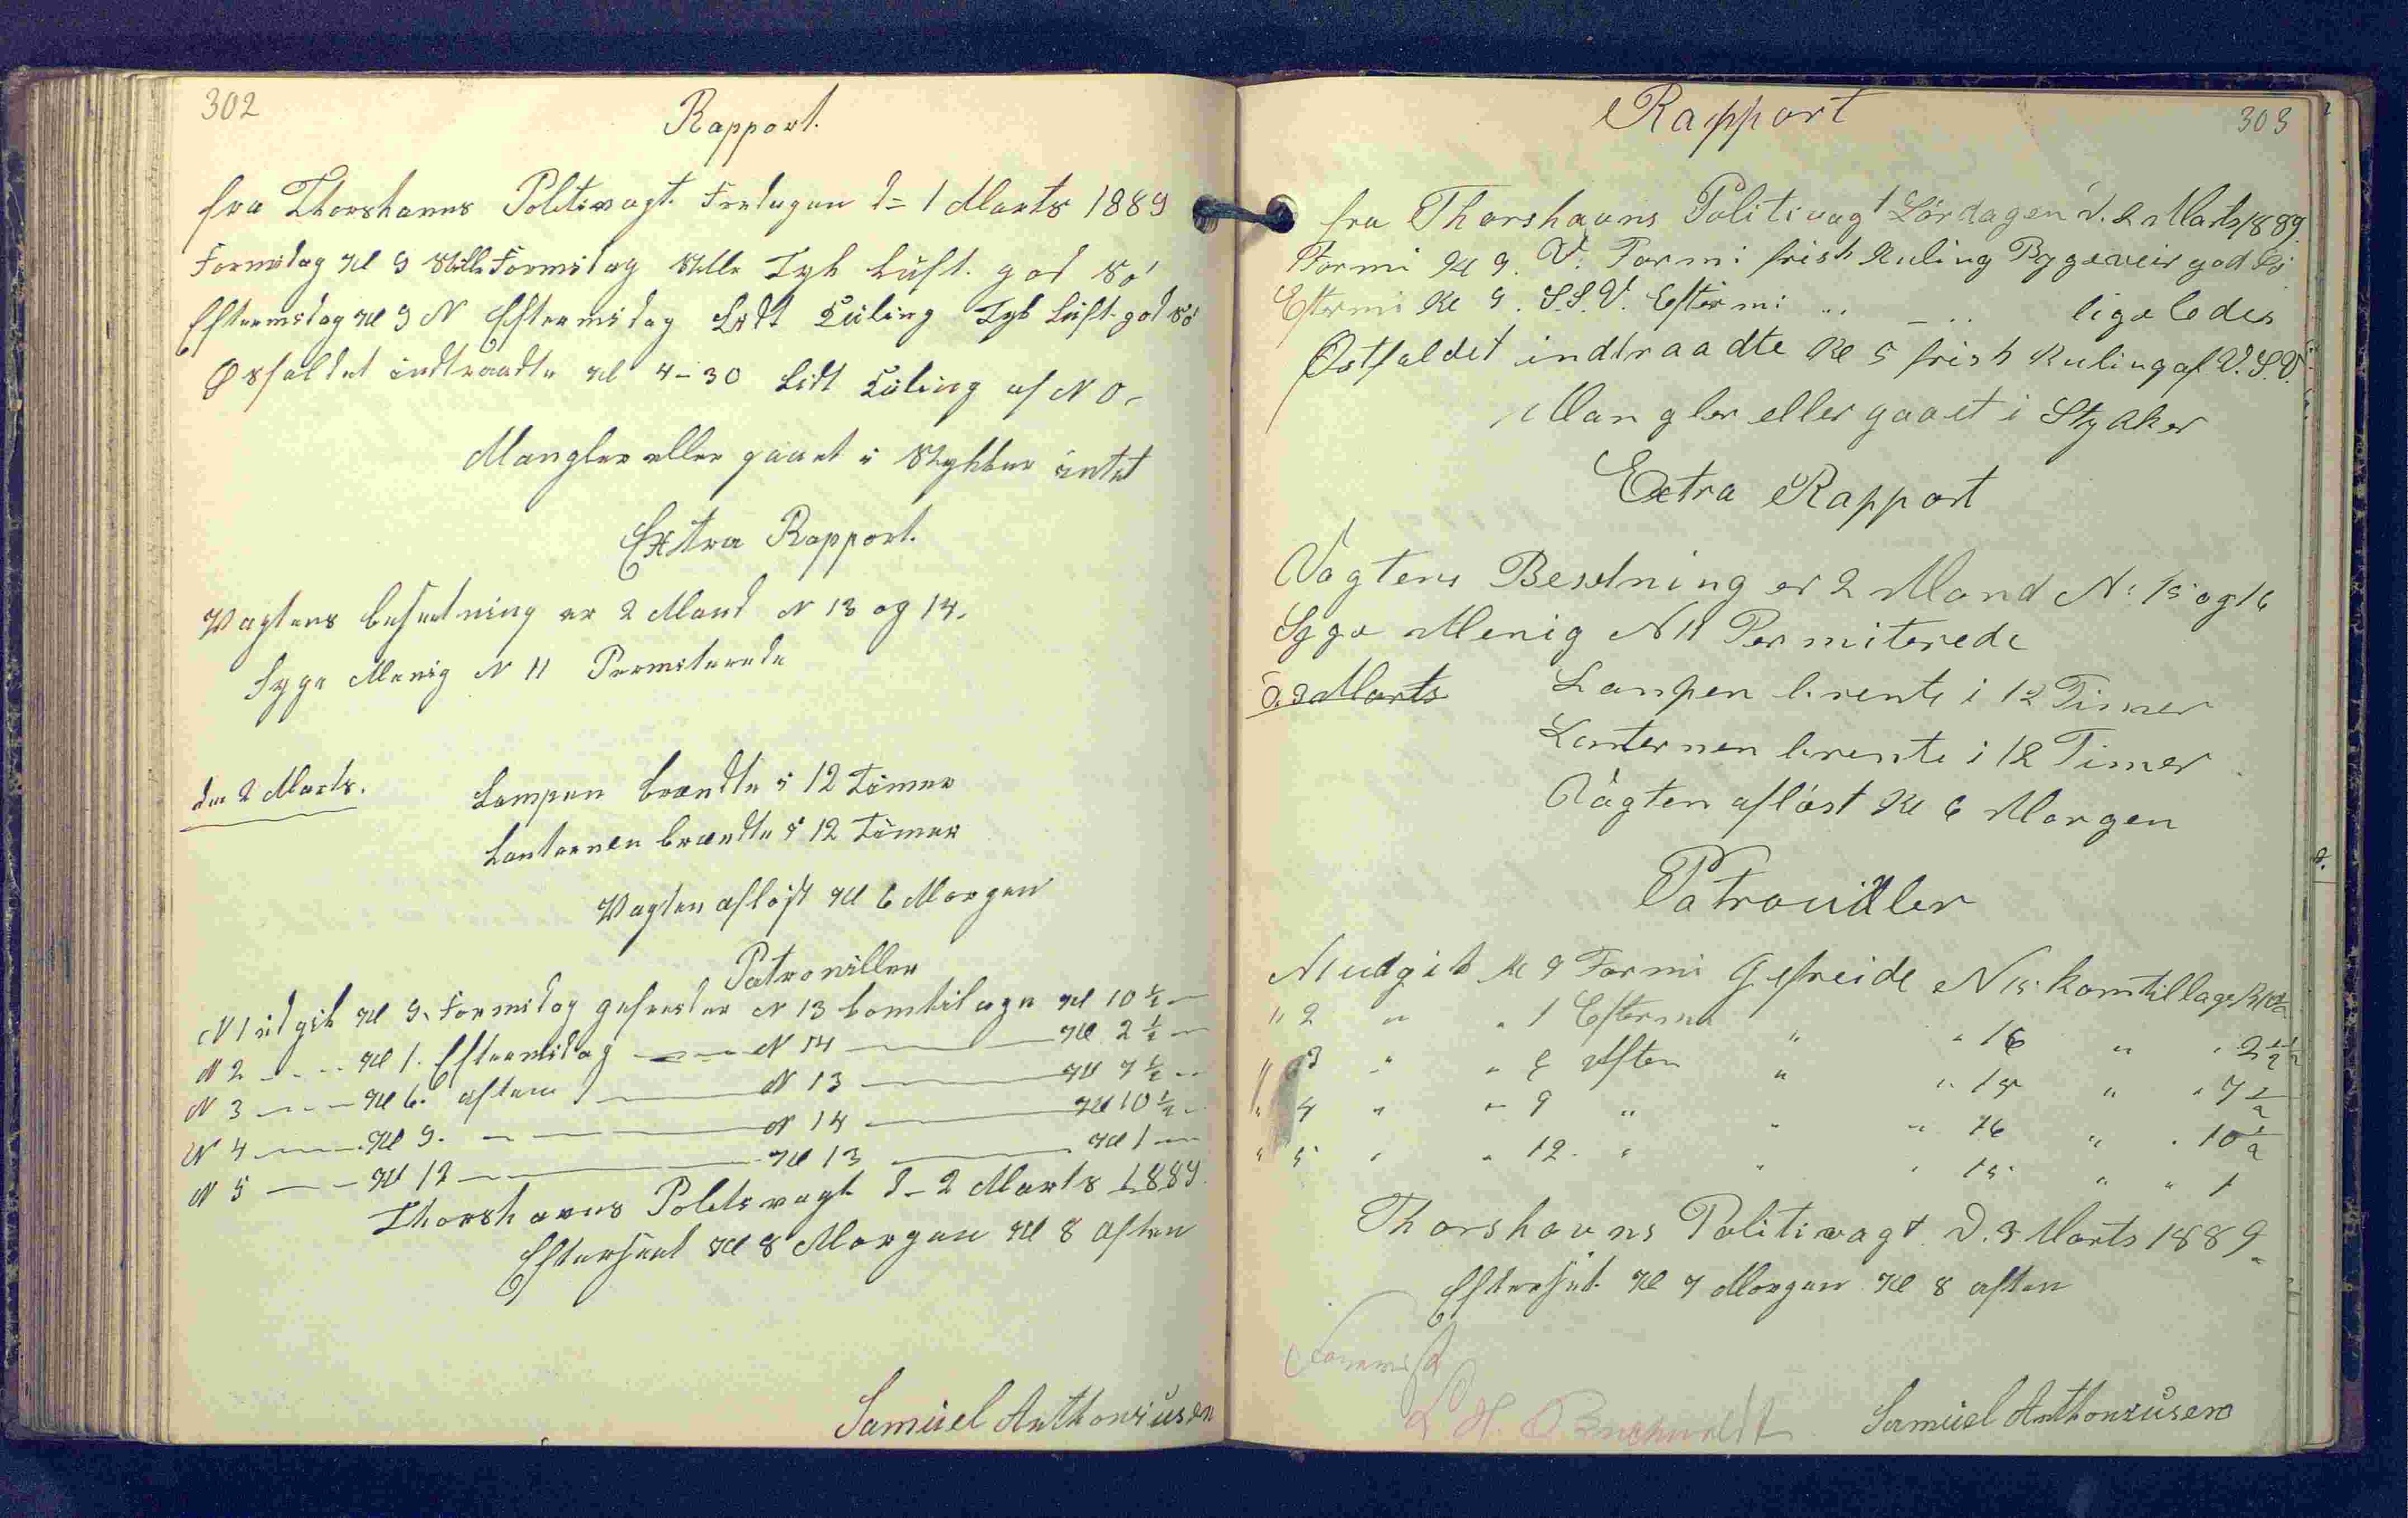 302
Rapport.
fra Thorshavns Politivagt. Fredagen d= 1 Marts 1889
Formidag Kl 9 Stille Formidag Stille Tyk Luft. god Sö
Eftermidag Kl 9 N Eftermidag Lidt Kuling Tyk Luft. god Sö
Østfaldet indtraadte Kl 4-30 Lidt Kuling af N O-
Mangler eller gaaet i Stykker intet
Extra Rapport.
Vagtens besætning er 2 Mand N 13 og 14.
Syge Menig N 11 Permiterede
den 2 Marts.
Lampen brændte i 12 Timer
Lanternen brændte i 12 Timer
Vagten afløst Kl 6 Morgen
Patroviller
N 1 udgik Kl 9. Formidag gefreider N 13 kom tilage Kl 10 ½ —
N 2 - - - - Kl 1. Eftermidag — — N 14 — Kl 2 ½ —
N 3 — — Kl 6. aften — N 13 — Kl 7 ½ —
N 4 — Kl 9. — — N 14 — Kl 10 ½ —
N 5 — — Kl 12 — — Kl 13 — Kl 1 —
Thorshavns Politivagt d- 2 Marts 1889.
Efterseet Kl 8 Morgen Kl 8 aften
Samuel Anthoniusen
303
Rapport
fra Thorshavns Politivagt Lördagen d. 2 Marts 1889.
Formi Kl 9. V. Formi frisk Kuling Bygeveir god Sö
Eftermi Kl 9. S.S.V. Eftermi „ — „ ligeledes
Østfaldet indtraadte Kl 5 frisk Kuling af V.S.V.
Mangler eller gaaet i Stykker
Extra Rapport
Vagtens Besetning er 2 Mand N: 15 og 16
Syge Menig N 11 Permiterede
d. 3 Marts
Lampen brente i 12 Timer
Lanternen brente i 12 Timer
Vagten aflöst Kl 6 Morgen
Patrouiller
N 1 udgik Kl 9 Formi Gefreide N 15. kom tillage Kl 10½
" 2 " " 1 Eftermi " " 16 " " 2½
" 3 " " 6 Aften " " 15 " " 7½
" 4 " " 9 " " " 16 " " 10½
" 5 " " 12. " " " 15 " " 1
Thorshavns Politivagt D. 3 Marts 1889
Efterset Kl 7 Morgen Kl 8 aften
Samuel Anthoniusen